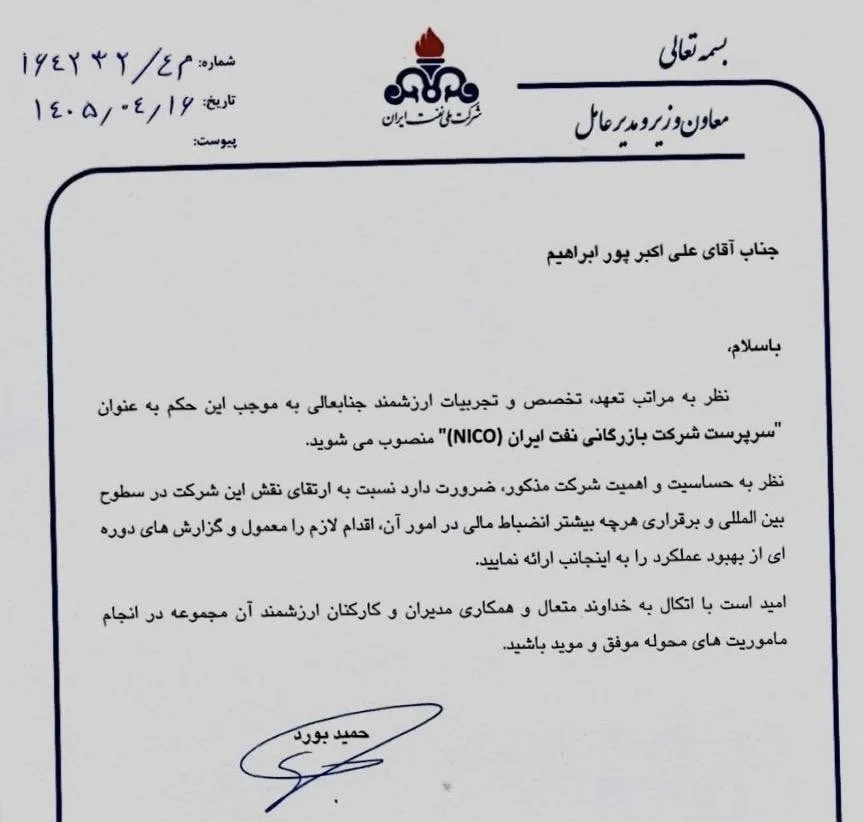 بسمه تعالی
معاون وزیر و مدیر عامل
شرکت ملی نفت ایران
شماره: م۴/۱۶۴۲۳۲
تاریخ: ۱۴۰۵/۰۴/۱۶
پیوست:
جناب آقای علی اکبر پور ابراهیم
باسلام،
نظر به مراتب تعهد، تخصص و تجربیات ارزشمند جنابعالی به موجب این حکم به عنوان
"سرپرست شرکت بازرگانی نفت ایران (NICO)" منصوب می شوید.
نظر به حساسیت و اهمیت شرکت مذکور، ضرورت دارد نسبت به ارتقای نقش این شرکت در سطوح
بین المللی و برقراری هرچه بیشتر انضباط مالی در امور آن، اقدام لازم را معمول و گزارش های دوره
ای از بهبود عملکرد را به اینجانب ارائه نمایید.
امید است با اتکال به خداوند متعال و همکاری مدیران و کارکنان ارزشمند آن مجموعه در انجام
ماموریت های محوله موفق و موید باشید.
حمید بورد